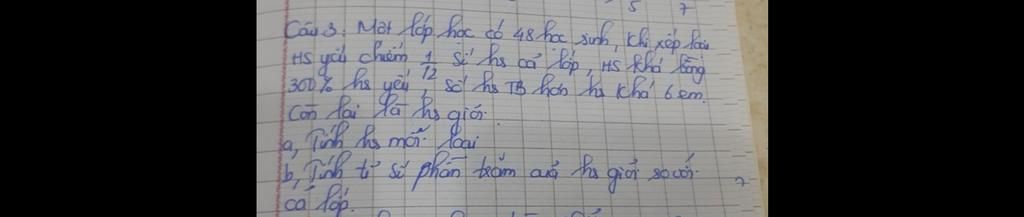 5 7
Câu 3: Một lớp học có 48 học sinh, khi xếp loại
HS yếu chiếm 1/12 số hs cả lớp, HS khá bằng
300% hs yếu, số hs TB hơn hs khá 6 em.
Còn lại là hs giỏi.
a, Tính hs mỗi loại
b, Tính tỉ số phần trăm của hs giỏi so với
cả lớp.